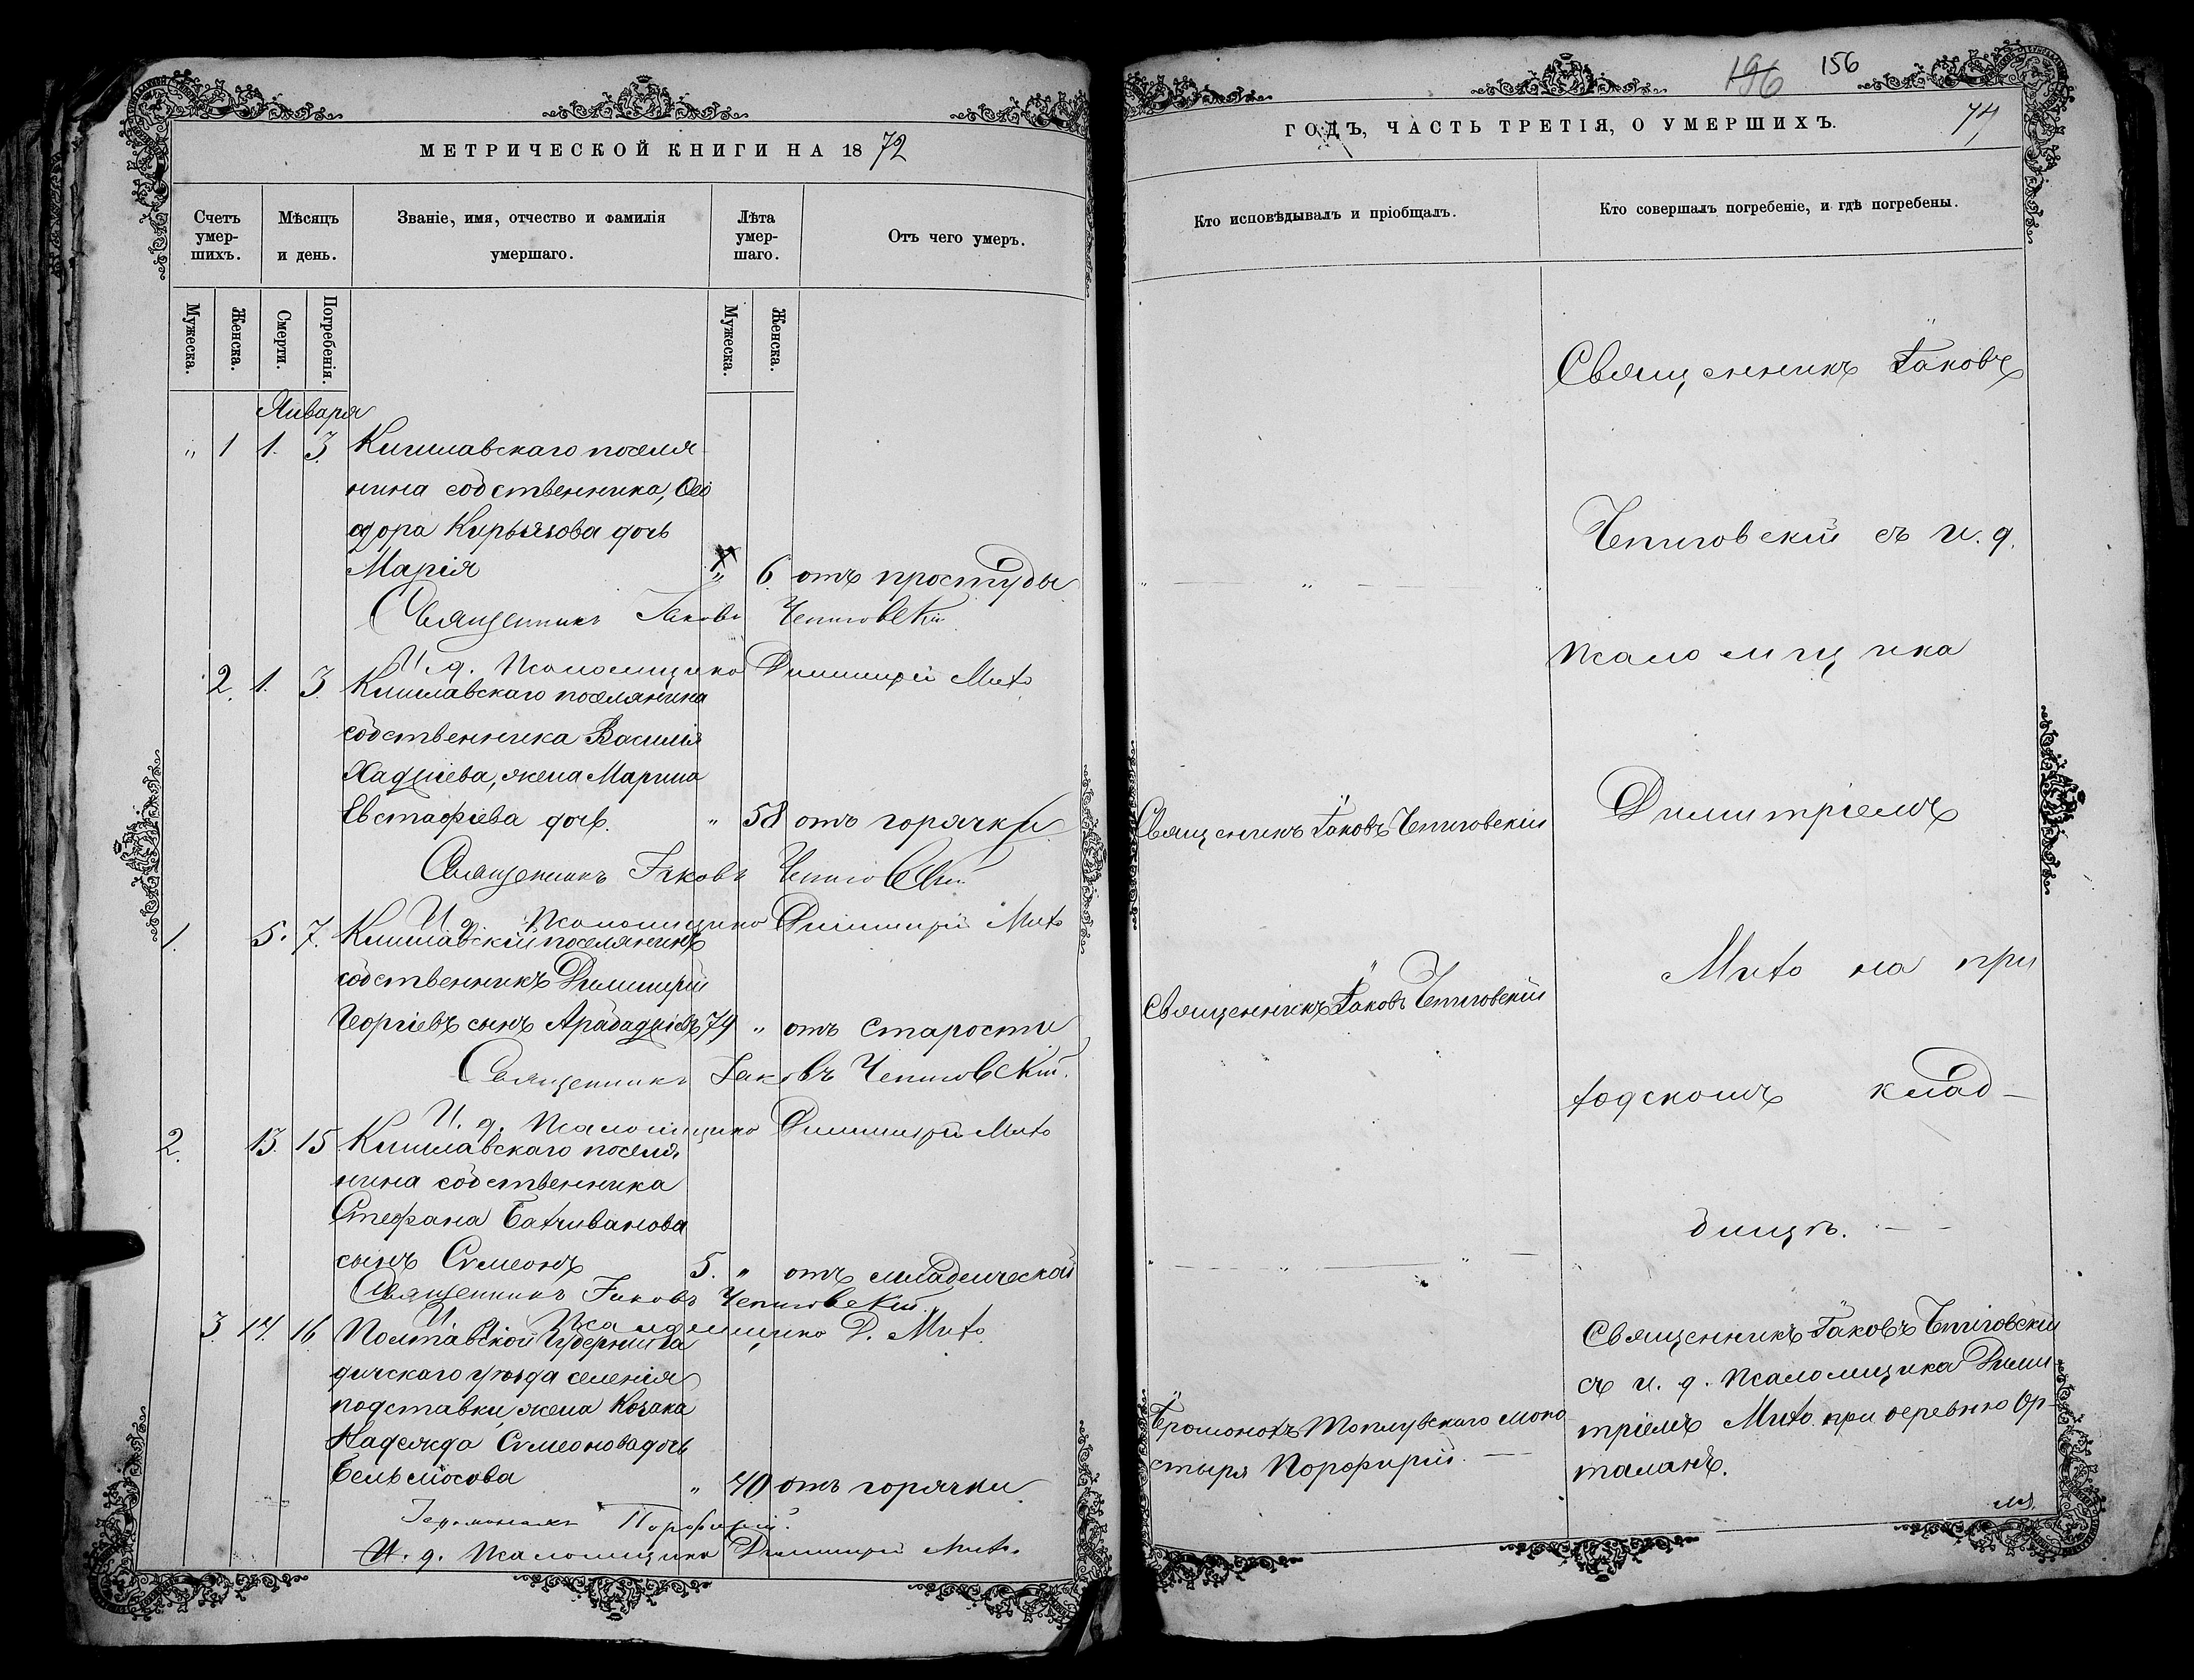 МЕТРИЧЕСКОЙ КНИГИ НА 1872
Счетъ умер-шихъ.
Мѣсяцъ и день.
Званіе, имя, отчество и фамилія умершаго.
Лѣта умер-шаго.
Отъ чего умеръ.
Мужеска.
Женска.
Смерти.
Погребенія.
Мужеска.
Женска.
Января
" 1 1. 3. Кишлавскаго поселя
нина собственника, Ѳео
дора Кирьязова дочь
Марія " 6. отъ простуды
Священникъ Іаковъ Чепиговскій
И. д. Псаломщика Димитрій Мито
2. 1. 3. Кишлавскаго поселянина
собственника Василія
Хаджіева, жена Марина
Евстафіева дочь. " 58 отъ горячки
Священникъ Іаковъ Чепиговскій
И. д. Псаломщика Димитрій Мито
1. 5. 7. Кишлавскій поселянинъ
собственникъ Димитрій
Георгіевъ сынъ Арабаджіевъ 79 " отъ старости
Священникъ Іаковъ Чепиговскій.
И. д. Псаломщика Димитрій Мито
2. 13. 15 Кишлавскаго поселя
нина собственника
Стефана Батчиванова
сынъ Сѵмеонъ 5. " отъ младенческой
Священникъ Іаковъ Чепиговскій.
И. д. Псаломщика Д. Мито.
3. 14. 16 Полтавской Губерніи Га
дячскаго уѣзда селенія
подставки, жена Козака
Надежда Сѵмеонова дочь
Бельмосова " 40 отъ горячки
Іеромонахъ Порфирій.
И. д. Псаломщика Димитрій Мито.
196 156
ГОДЪ, ЧАСТЬ ТРЕТІЯ, О УМЕРШИХЪ. 74
Кто исповѣдывалъ и пріобщалъ.
Кто совершалъ погребеніе, и гдѣ погребены.
Священникъ Іаковъ
Чепиговскій съ и. д.
" — " — "
псаломщика
Священникъ Іаковъ Чепиговскій
Димитріемъ
Мито на при
Священникъ Іаковъ Чепиговскій
ходскомъ клад-
бищѣ. — -
- " — " —
Іеромонахъ Топлувскаго мона
стыря Порфирій. —
Священникъ Іаковъ Чепиговскій
съ и. д. псаломщика Дими
тріемъ Мито при деревню Ор-
таланъ.